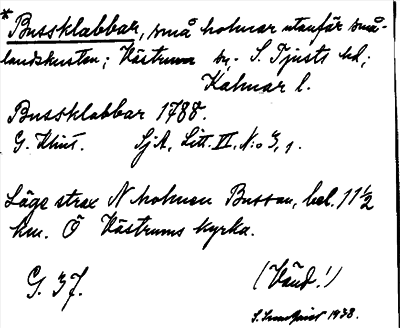 * Bussklabbar, små holmar utanför små-
landskusten; Västrum sn. S. Tjusts hd;
Kalmar l.
Bussklabbar 1788.
G. Klint. SjA, Litt. II, N:o 3, 1.
Läge strax N holmen Bussan, bel. 11 1/2
km. Ö Västrums kyrka.
G. 37. (Vänd!)
1938